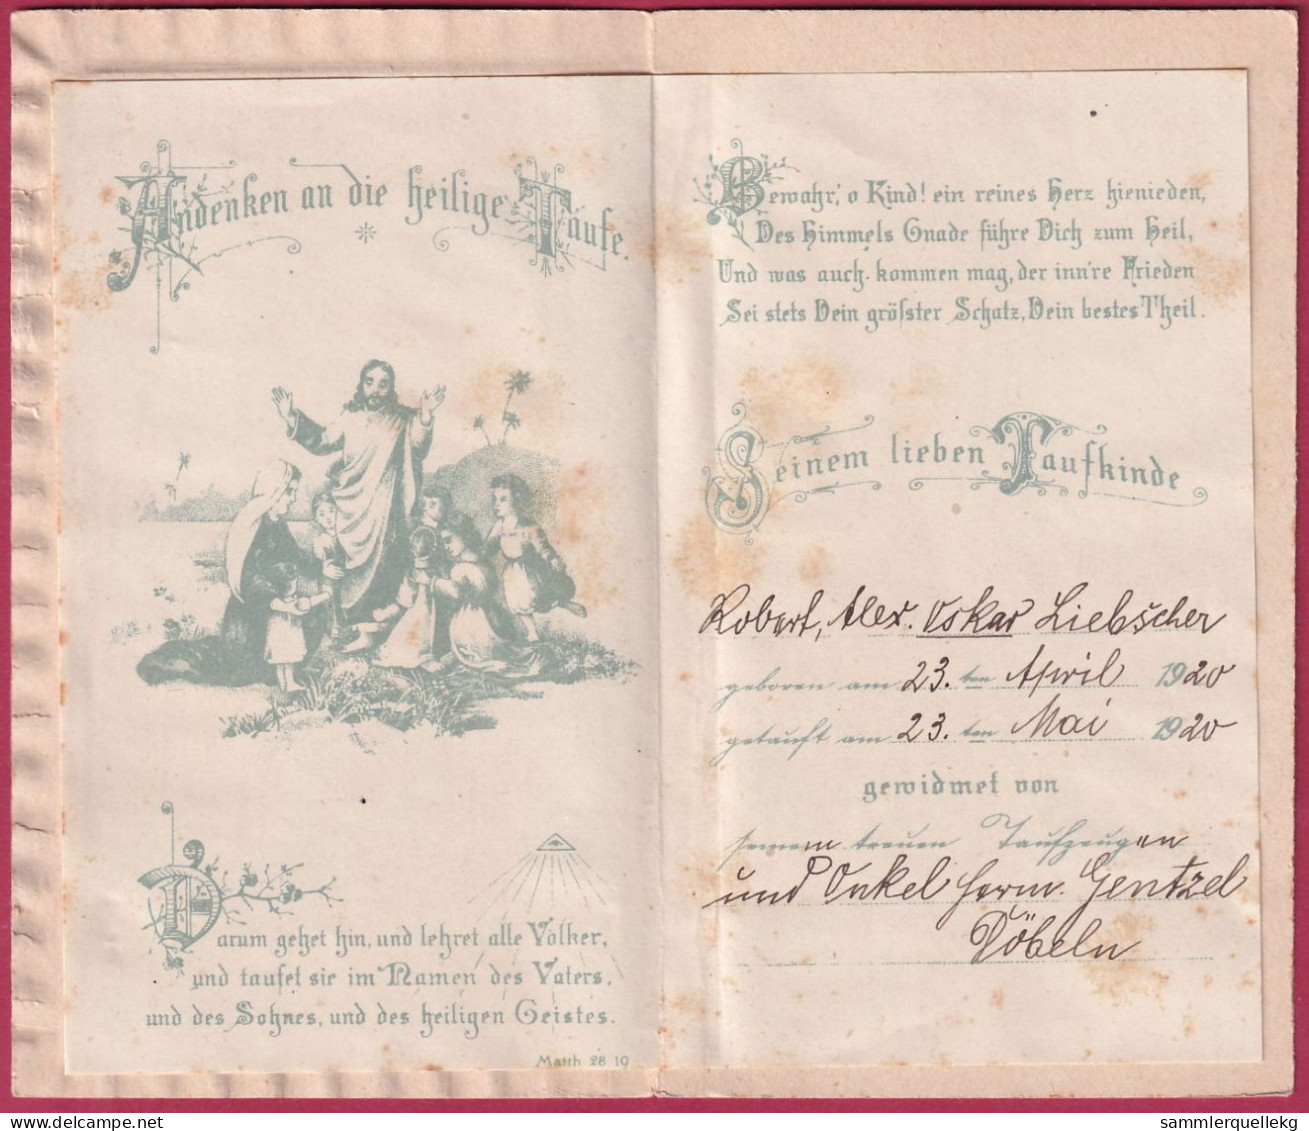 Andenken an die heilige Taufe.
Darum gehet hin, und lehret alle Völker,
und taufet sie im Namen des Vaters,
und des Sohnes, und des heiligen Geistes.
Matth 28 19
Bewahr', o Kind! ein reines Herz hienieden,
Des Himmels Gnade führe Dich zum Heil,
Und was auch kommen mag, der inn're Frieden
Sei stets Dein gröſster Schatz, Dein bestes Theil.
Seinem lieben Taufkinde
Robert, Alex. Oskar Liebscher
geboren am 23. ten April 1920
getauft am 23. ten Mai 1920
gewidmet von
seinem treuen Taufzeugen
und Onkel Herm. Gentzel
Döbeln
sammlerquellekg